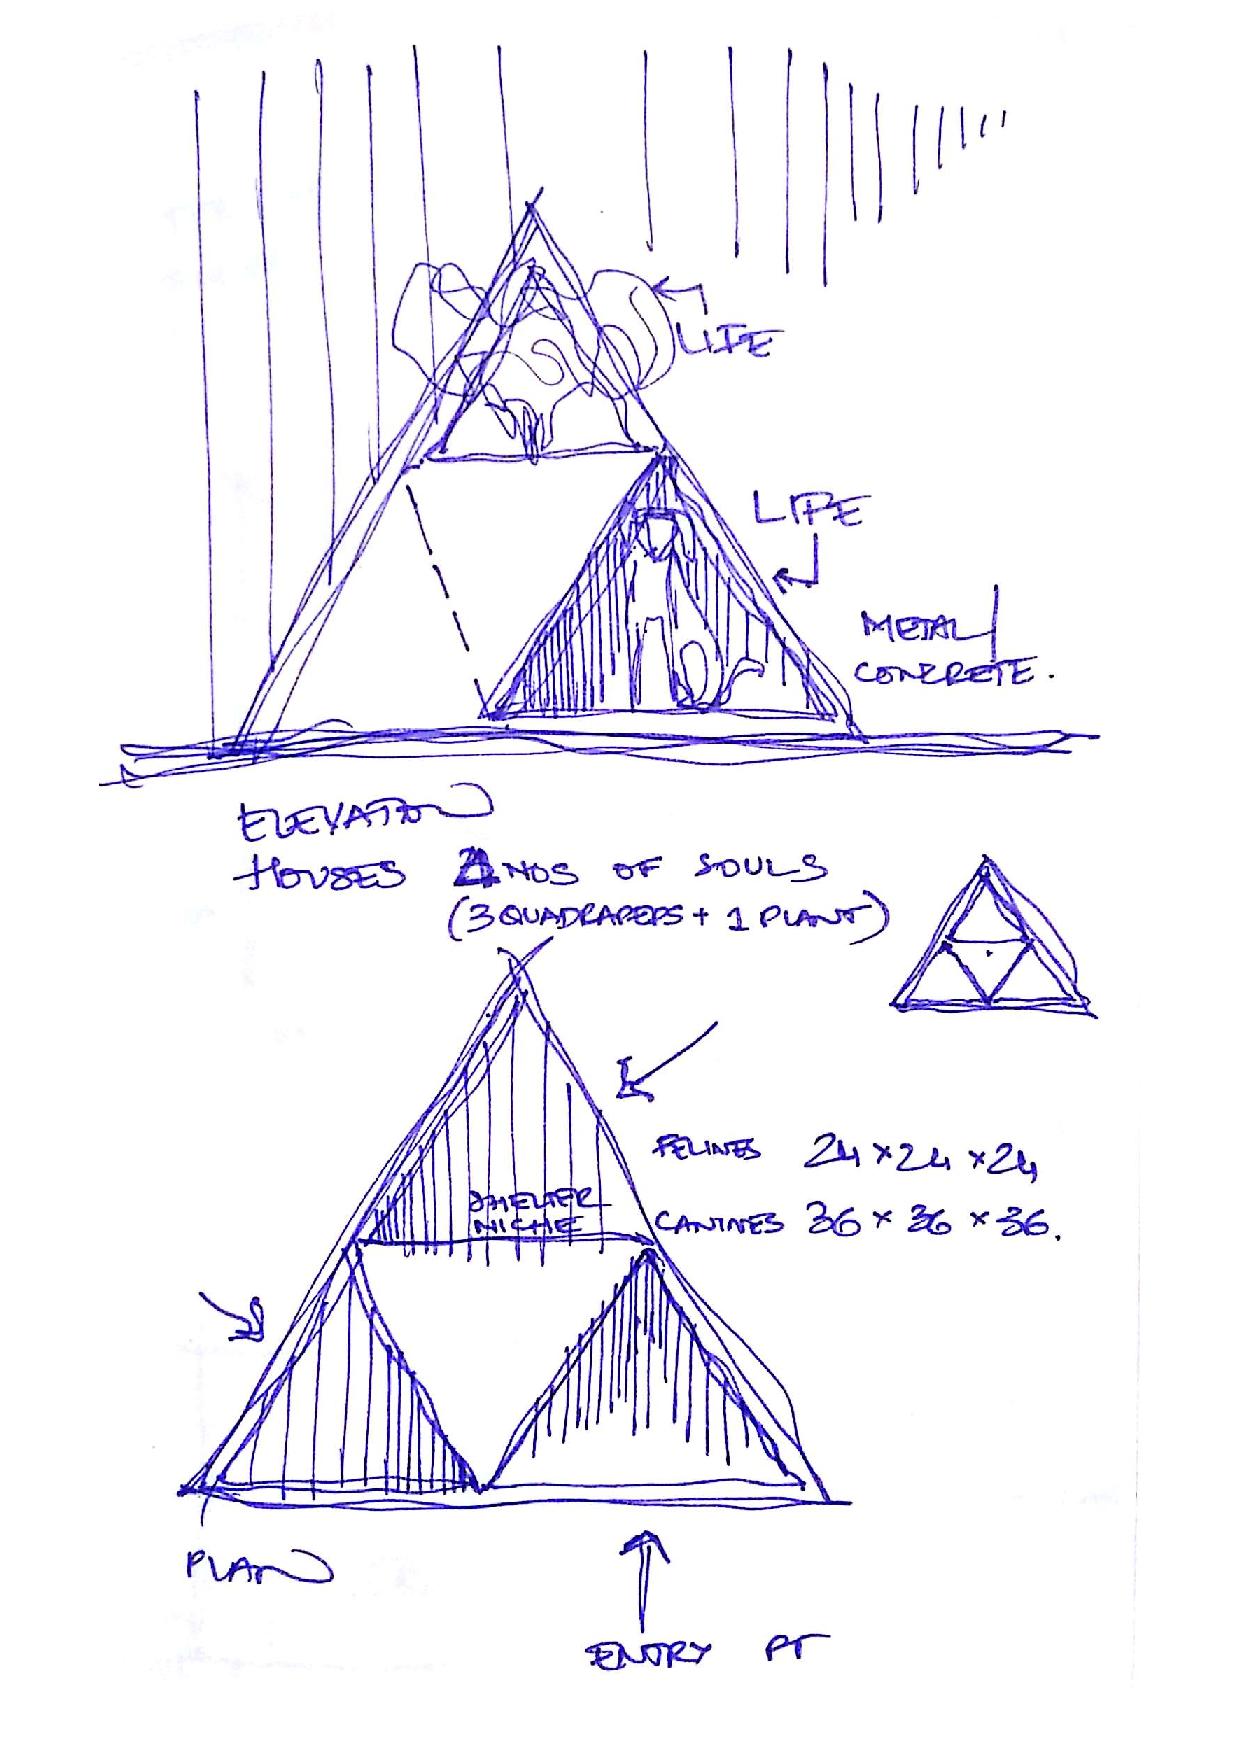 LIFE
LIFE
METAL/
CONCRETE.
ELEVATION
HOUSES 4 NOS OF SOULS
(3 QUADRAPEPS + 1 PLANT)
FELINES 24 × 24 × 24
SHELTER
NICHE
CANINES 36 × 36 × 36.
PLAN
ENTRY PT